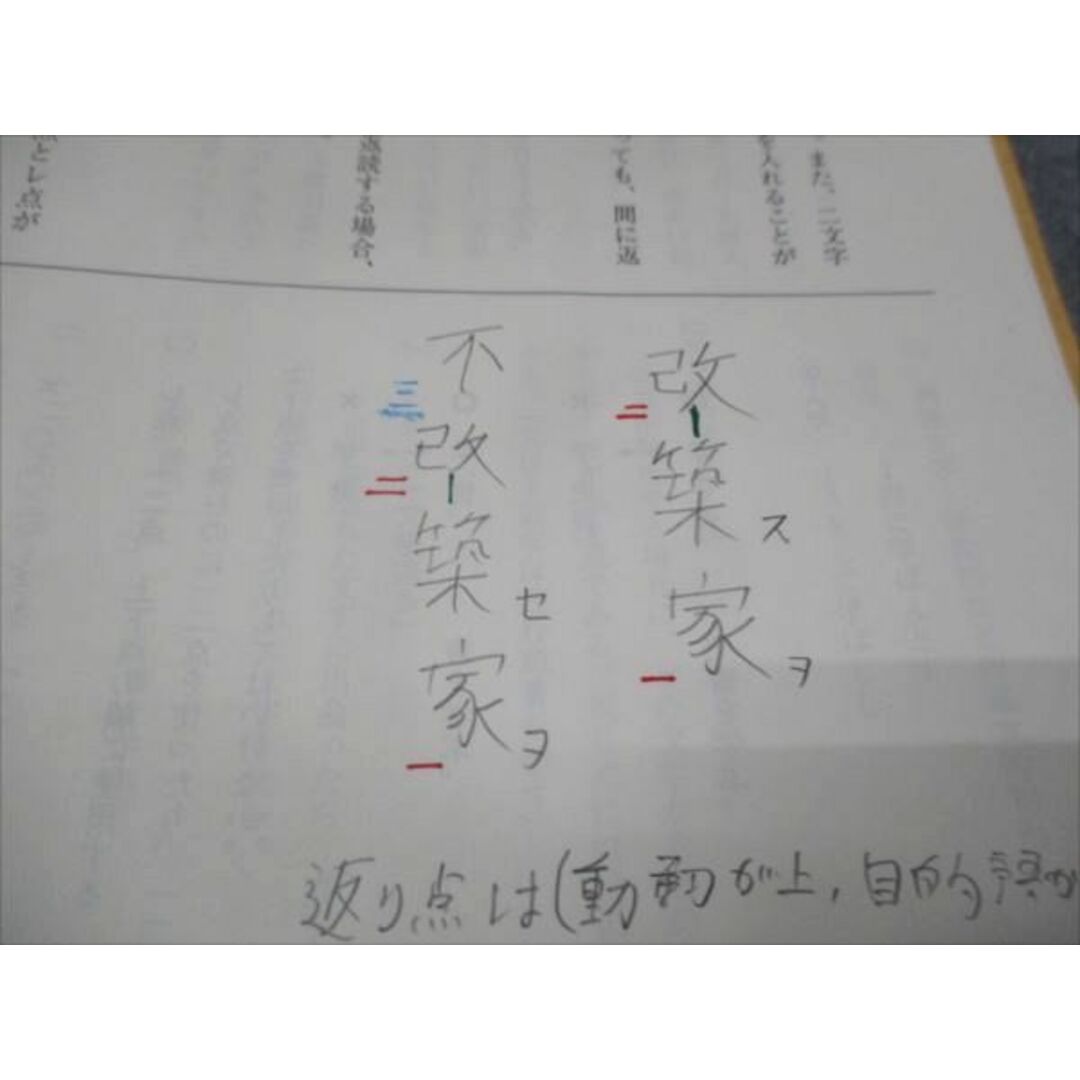 また、二文字
を入れることが
っても、間に返
返読する場合、
点とレ点が
改二築ス家一ヲ
不三改二築セ家一ヲ
返り点は(動詞が上,目的語が